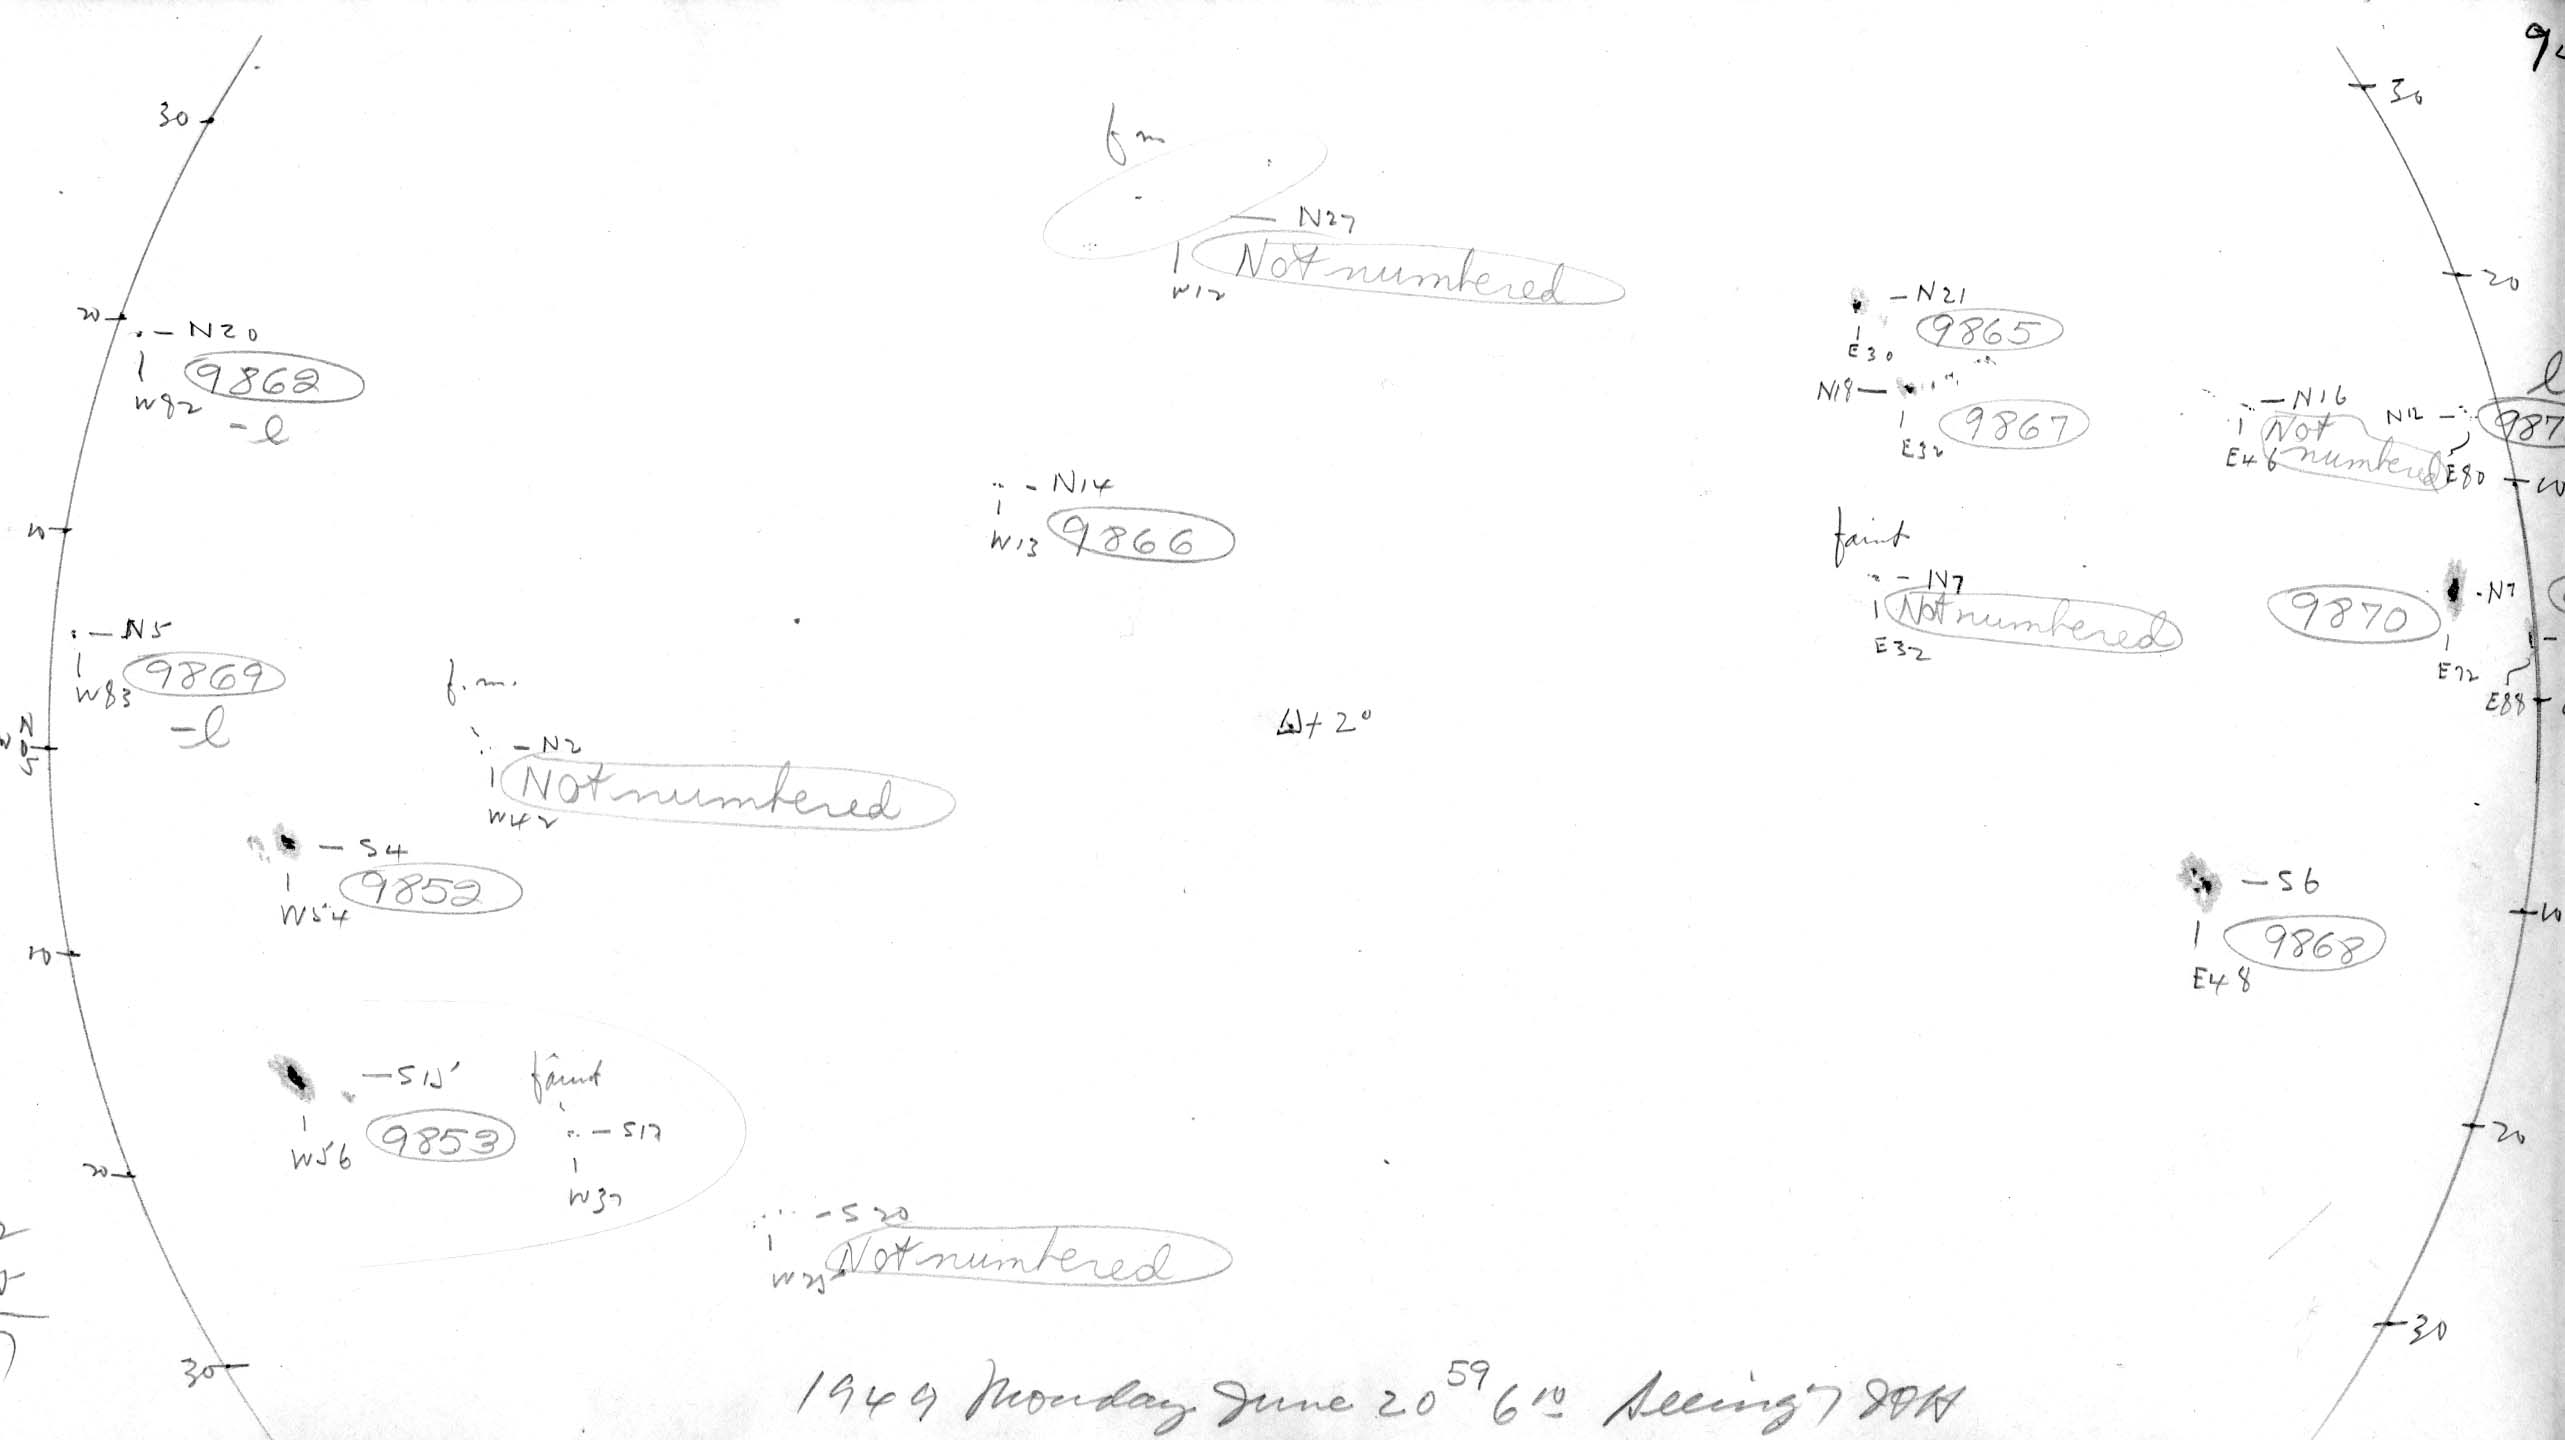 30
30
f m
— N27
Not numbered
W12
20
20
— N20
9862
W82
-l
— N21
9865
E30
N18 —
9867
E32
— N16
Not
numbered
E46
N12 —
987
E80
l
10
10
- N14
9866
W13
faint
- N7
Not numbered
E32
9870
- N7
E72
E88
— N5
9869
W83
-l
f.m.
- N2
Not numbered
W42
+ 2°
— S4
9852
W54
— S6
9868
E48
10
10
— S15
9853
W56
faint
— S17
W37
20
20
- S20
Not numbered
W25
30
30
1949 Monday June 20 59 6 10 Seeing 7